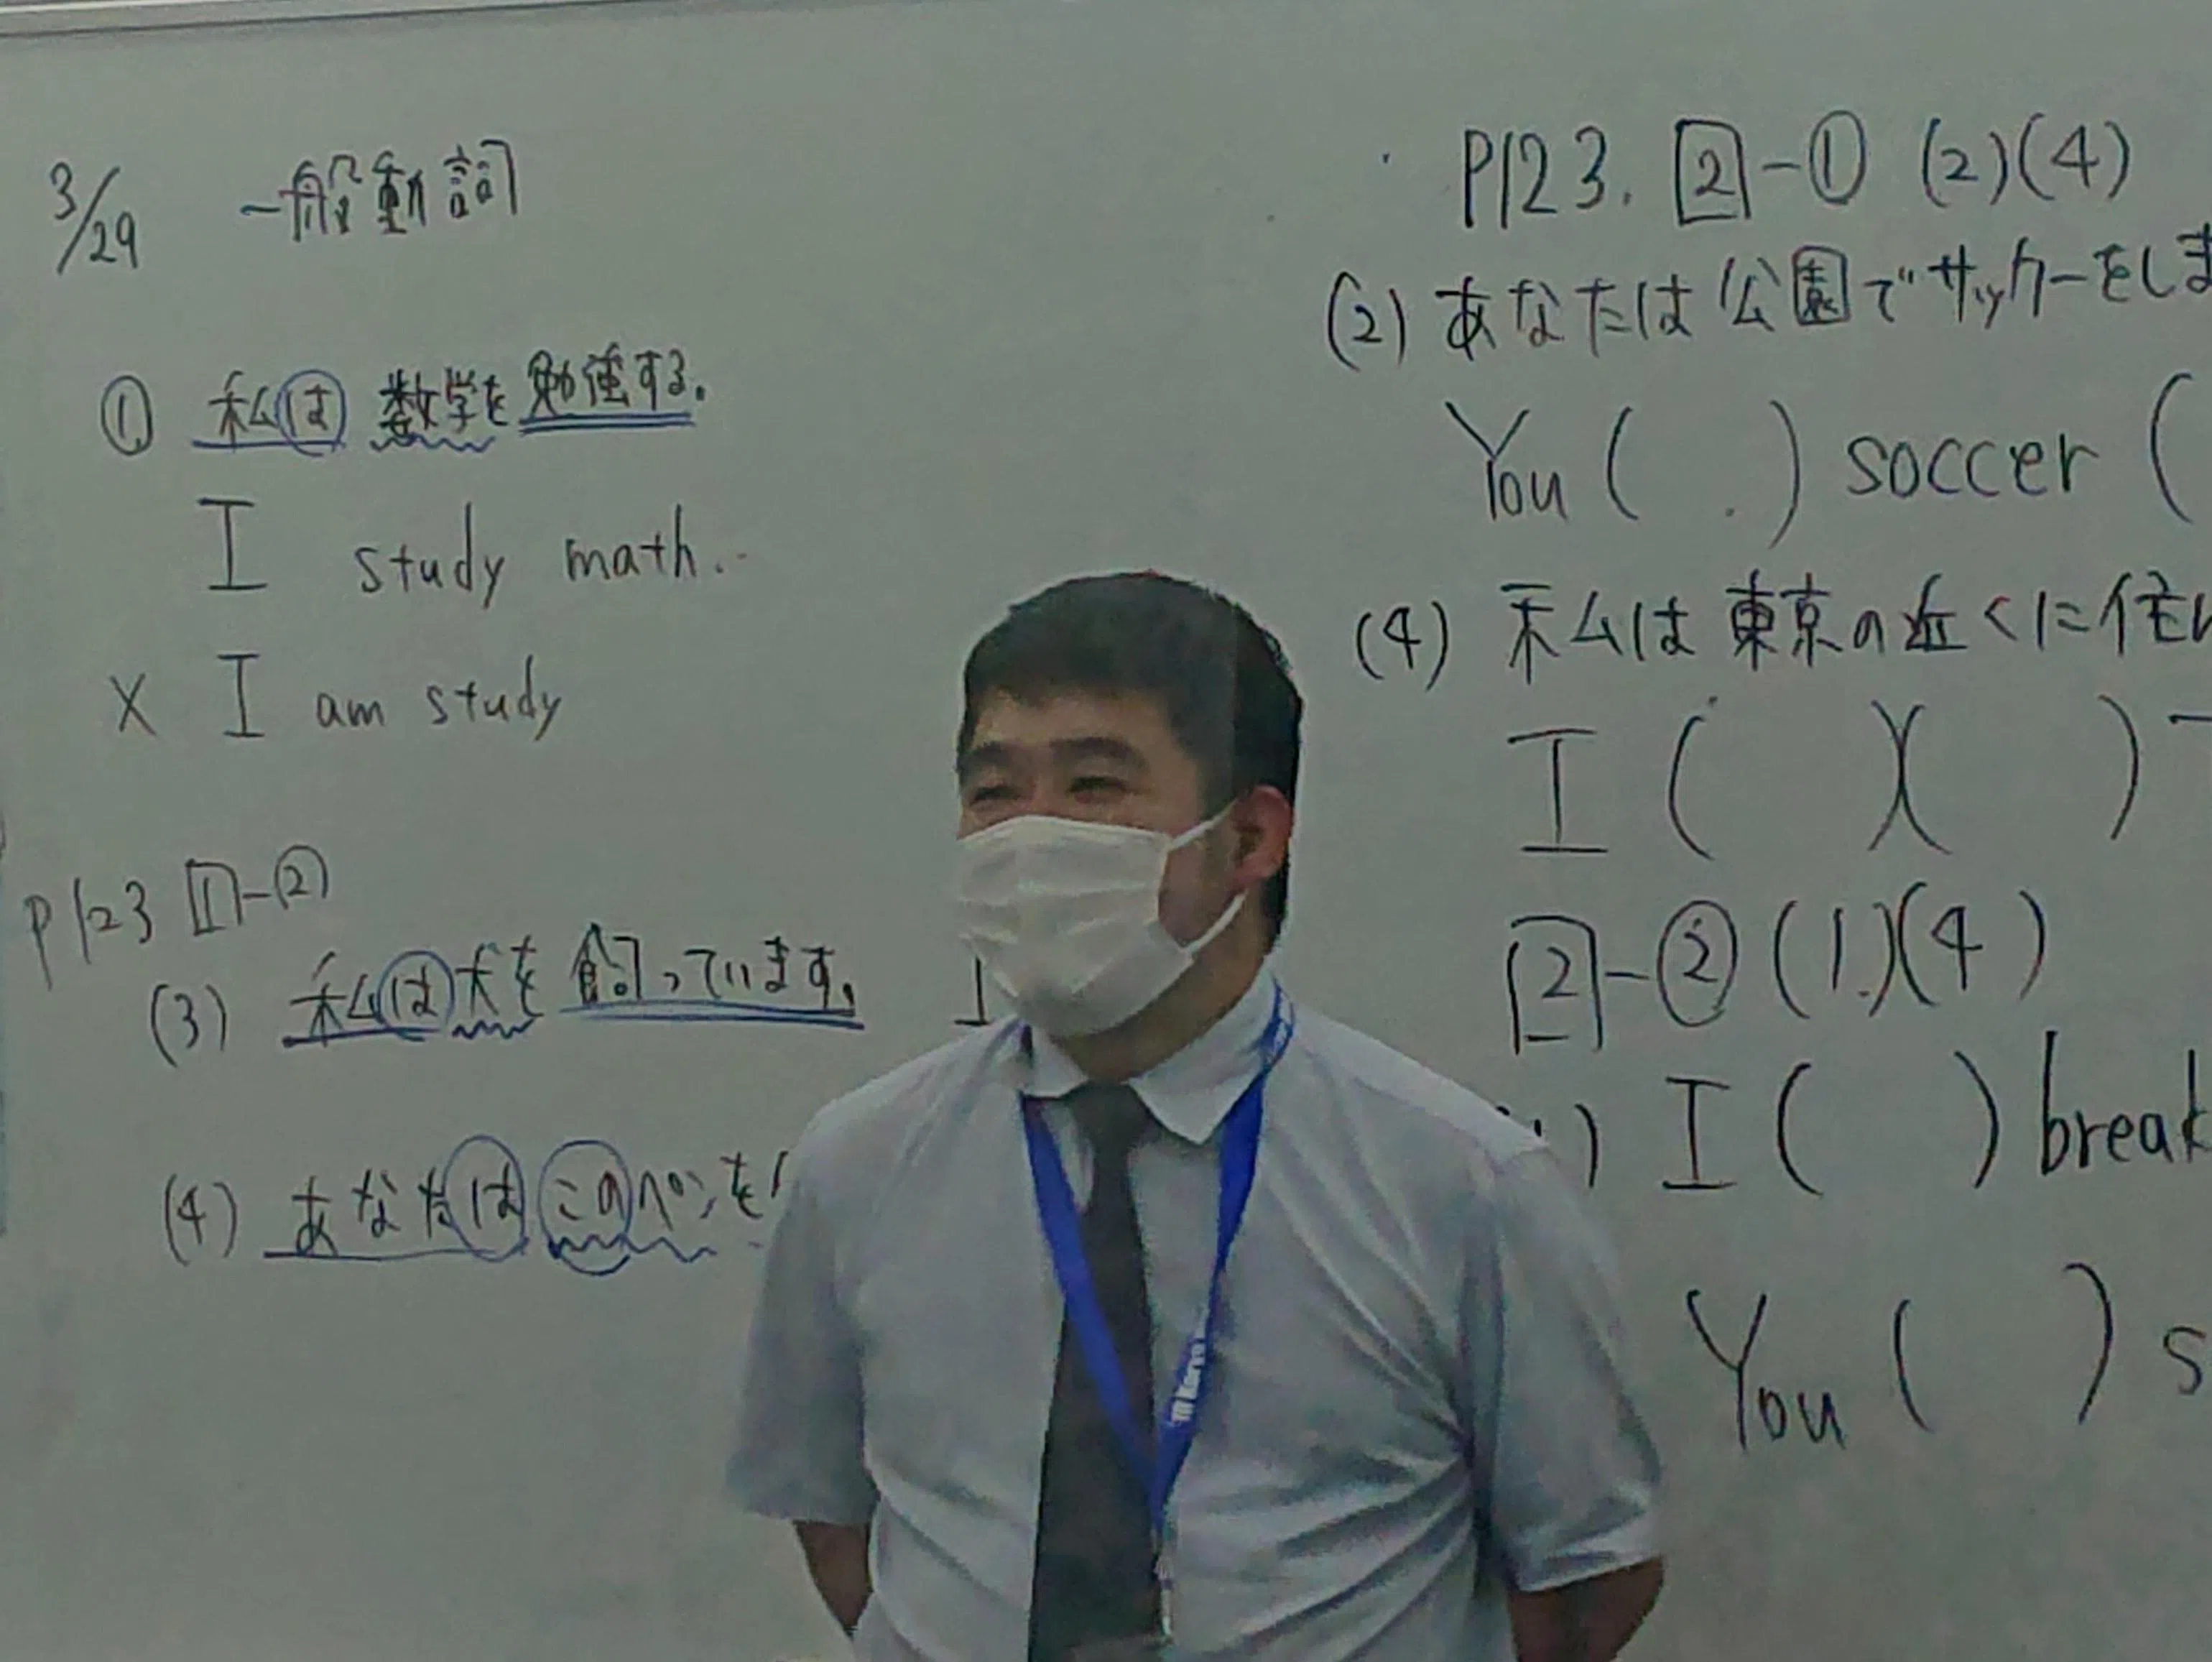 3/29 一般動詞
① 私は 数学を 勉強する.
I study math.
X I am study
P123 1-②
(3) 私は犬を 飼っています. I
(4) あなたは このペンを
P123. 2-① (2)(4)
(2) あなたは公園でサッカーをしま
You ( ) soccer (
(4) 私は東京の近くに住
I ( )( )
2-② (1)(4)
) I ( ) break
You ( ) s